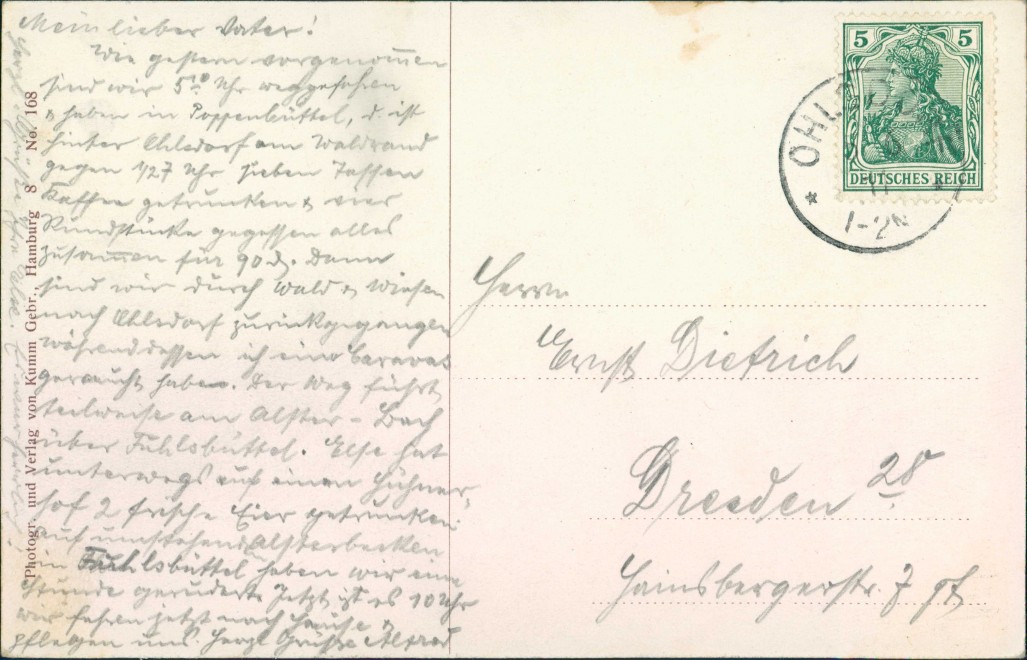 Mein lieber Vater!
Wie gestern vorgenommen
sind wir 5¹⁰ Uhr weggefahren
& haben in Poppenbüttel, d. ist
hinter Ohlsdorf am Waldrand
gegen 1/27 Uhr sieben Tassen
Kaffee getrunken & vier
Rundstücke gegessen alles
zusammen für 90 d. Dann
sind wir durch Wald & Wiesen
nach Ohlsdorf zurückgegangen
währenddessen ich eine
geraucht habe. Der Weg führt
teilweise am Alster-Bach
über Fuhlsbüttel. Else hat
unterwegs auf einem Hühner-
hof 2 frische Eier getrunken.
Auf umstehend Alsterbecken
in Fuhlsbüttel haben wir eine
Stunde gerudert. Jetzt ist es 10 Uhr
wir fahren jetzt nach Hause &
pflegen uns. Herzl Grüsse Alfred
Herzl. Else.
Photogr. und Verlag von Kumm Gebr., Hamburg 8 No. 168
5 5
DEUTSCHES REICH
OHLSD
11
1-2N
Herrn
Ernst Dietrich
Dresden 28
Hainsbergerstr. 7